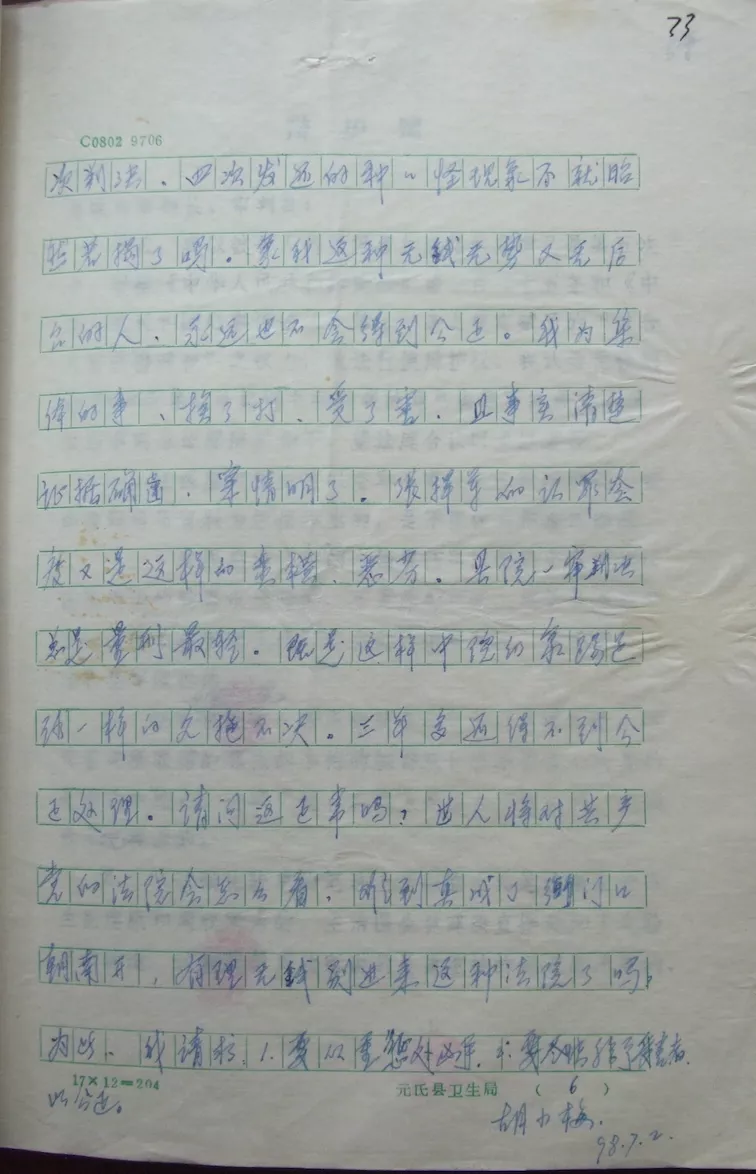 33
C0802 9706
次判决、四次发还的种种怪现象不就昭
然若揭了吗。象我这种无钱无势又无后
台的人、永远也不会得到公正。我为集
体的事、挨了打、受了害、且事实清楚
证据确凿、案情明了。张择军的认罪态
度又是这样的蛮横、恶劣。县院一审判决
总是量刑最轻。既是这样中院的象踢足
球一样的久拖不决。三年多还得不到公
正处理。请问这正常吗？世人将对共产
党的法院会怎么看、难到真成了衙门口
朝南开，有理无钱别进来这种法院了吗？
为此、我请求：1.要从重惩处凶手。2:要令赔给予受害者
以公正。
17×12=204
元氏县卫生局 （6）
胡小梅.
98.7.2.